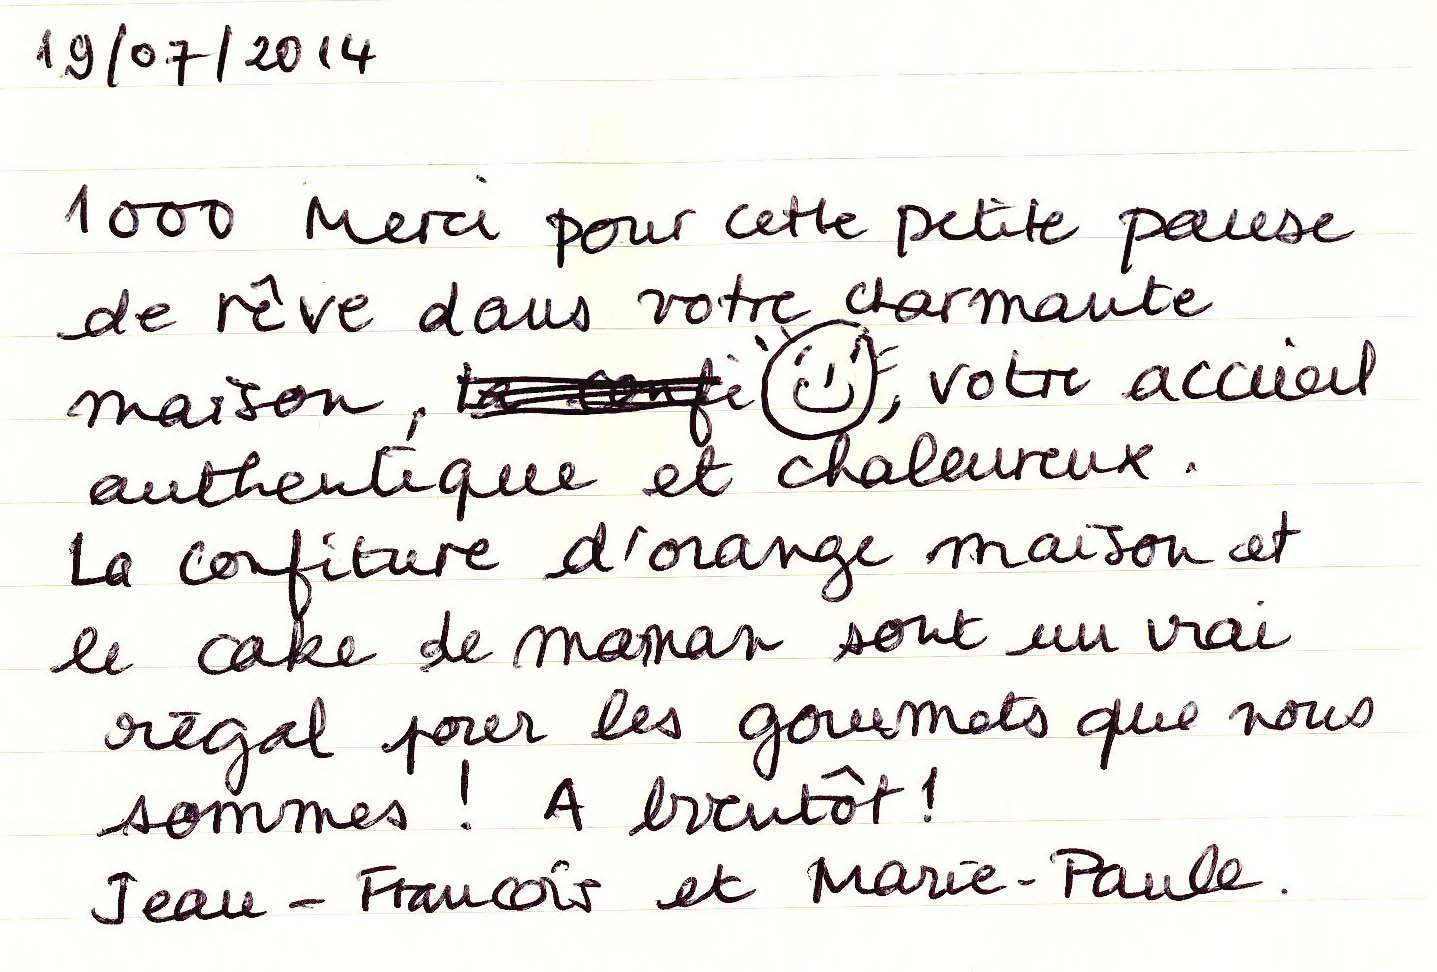 19/07/2014
1000 Merci pour cette petite pause
de rêve dans votre charmante
maison, la confi , votre accueil
authentique et chaleureux.
La confiture d'orange maison et
le cake de maman sont un vrai
régal pour les gourmets que nous
sommes ! A bientôt !
Jean-Francois et Marie-Paule.